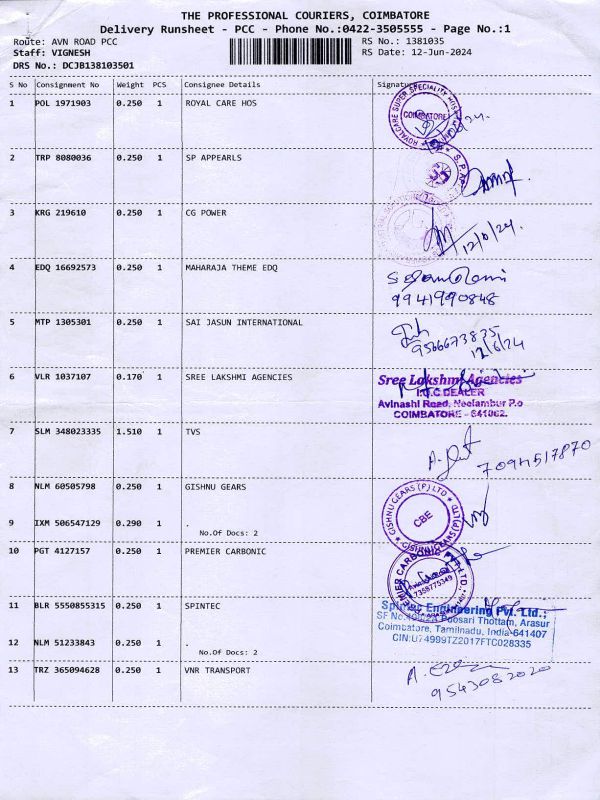 THE PROFESSIONAL COURIERS, COIMBATORE
Delivery Runsheet - PCC - Phone No.:0422-3505555 - Page No.:1
Route: AVN ROAD PCC RS No.: 1381035
Staff: VIGNESH RS Date: 12-Jun-2024
DRS No.: DCJB138103501
S No Consignment No Weight PCS Consignee Details Signature
1 POL 1971903 0.250 1 ROYAL CARE HOS
COIMBATORE
2 TRP 8080036 0.250 1 SP APPEARLS
3 KRG 219610 0.250 1 CG POWER
12/6/24
4 EDQ 16692573 0.250 1 MAHARAJA THEME EDQ
9941990848
5 MTP 1305301 0.250 1 SAI JASUN INTERNATIONAL
9566673835
12/6/24
6 VLR 1037107 0.170 1 SREE LAKSHMI AGENCIES
Sree Lakshmi Agencies
I.T.C DEALER
Avinashi Road, Neelambur P.o
COIMBATORE - 641062.
7 SLM 348023335 1.510 1 TVS
7094517870
8 NLM 60505798 0.250 1 GISHNU GEARS
GISHNU GEARS (P) LTD
CBE
9 IXM 506547129 0.290 1 .
No.Of Docs: 2
10 PGT 4127157 0.250 1 PREMIER CARBONIC
PREMIER CARBONIC PVT LTD.,
7358775349
11 BLR 5550855315 0.250 1 SPINTEC
Spintec Engineering Pvt. Ltd.,
Thottam, Arasur
Coimbatore, Tamilnadu, India-641407
CIN:U74999TZ2017FTC028335
12 NLM 51233843 0.250 1 .
No.Of Docs: 2
13 TRZ 365094628 0.250 1 VNR TRANSPORT
9543082020